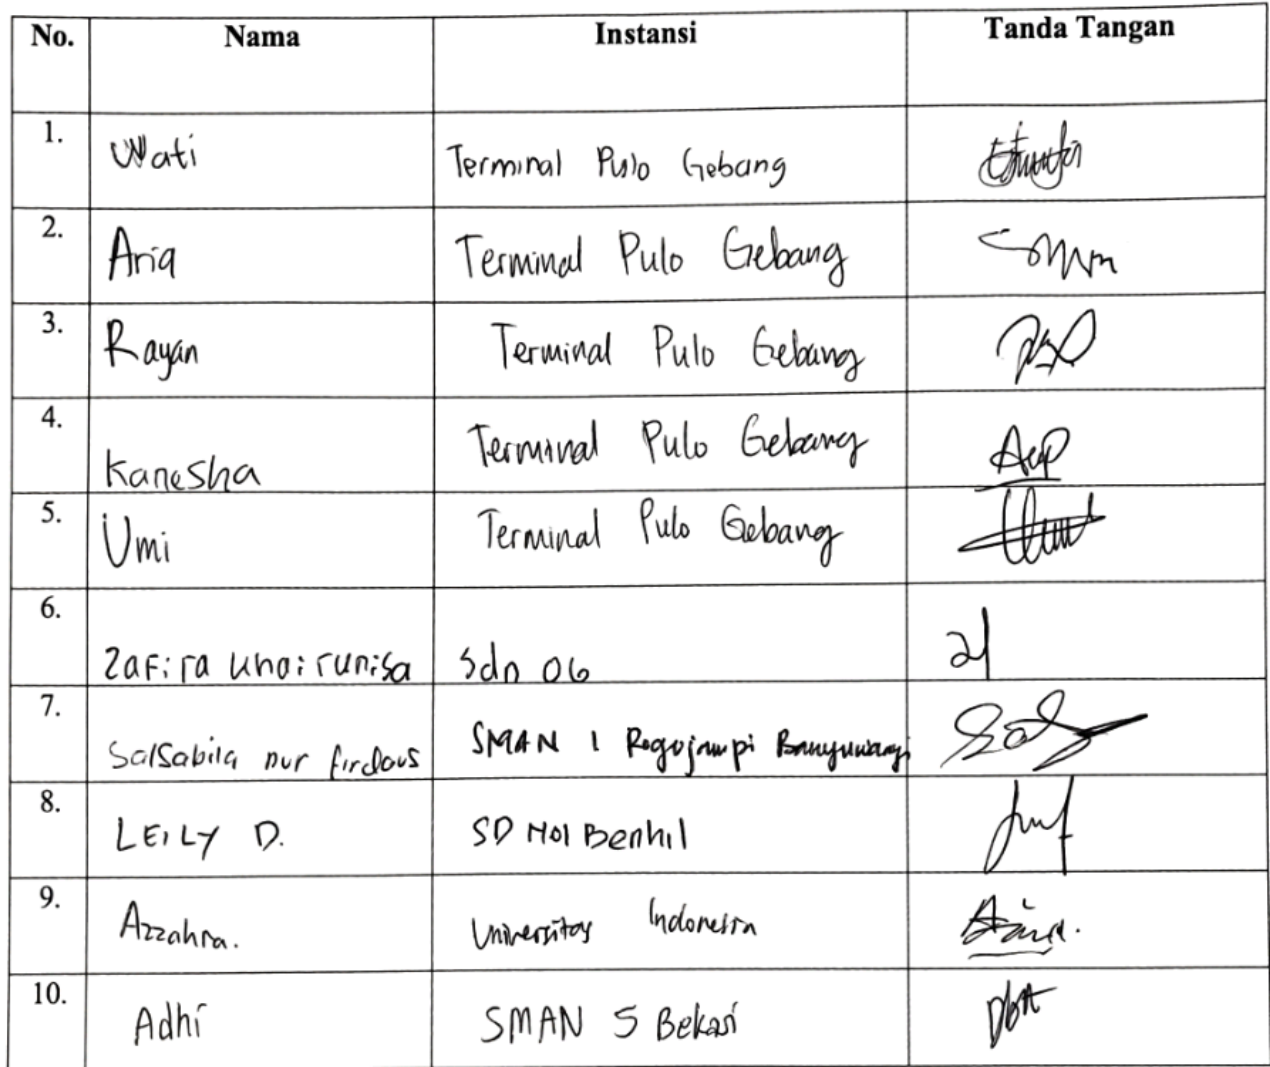 No. Nama Instansi Tanda Tangan
1. Wati Terminal Pulo Gebang
2. Aria Terminal Pulo Gebang
3. Rayan Terminal Pulo Gebang
4. Kanesha Terminal Pulo Gebang
5. Umi Terminal Pulo Gebang
6. Zafira Khairunisa Sdn 06
7. Salsabila nur firdaus SMAN 1 Rogojampi Banyuwangi
8. LEILY D. SD N01 Benhil
9. Azzahra. Universitas Indonesia
10. Adhi SMAN 5 Bekasi